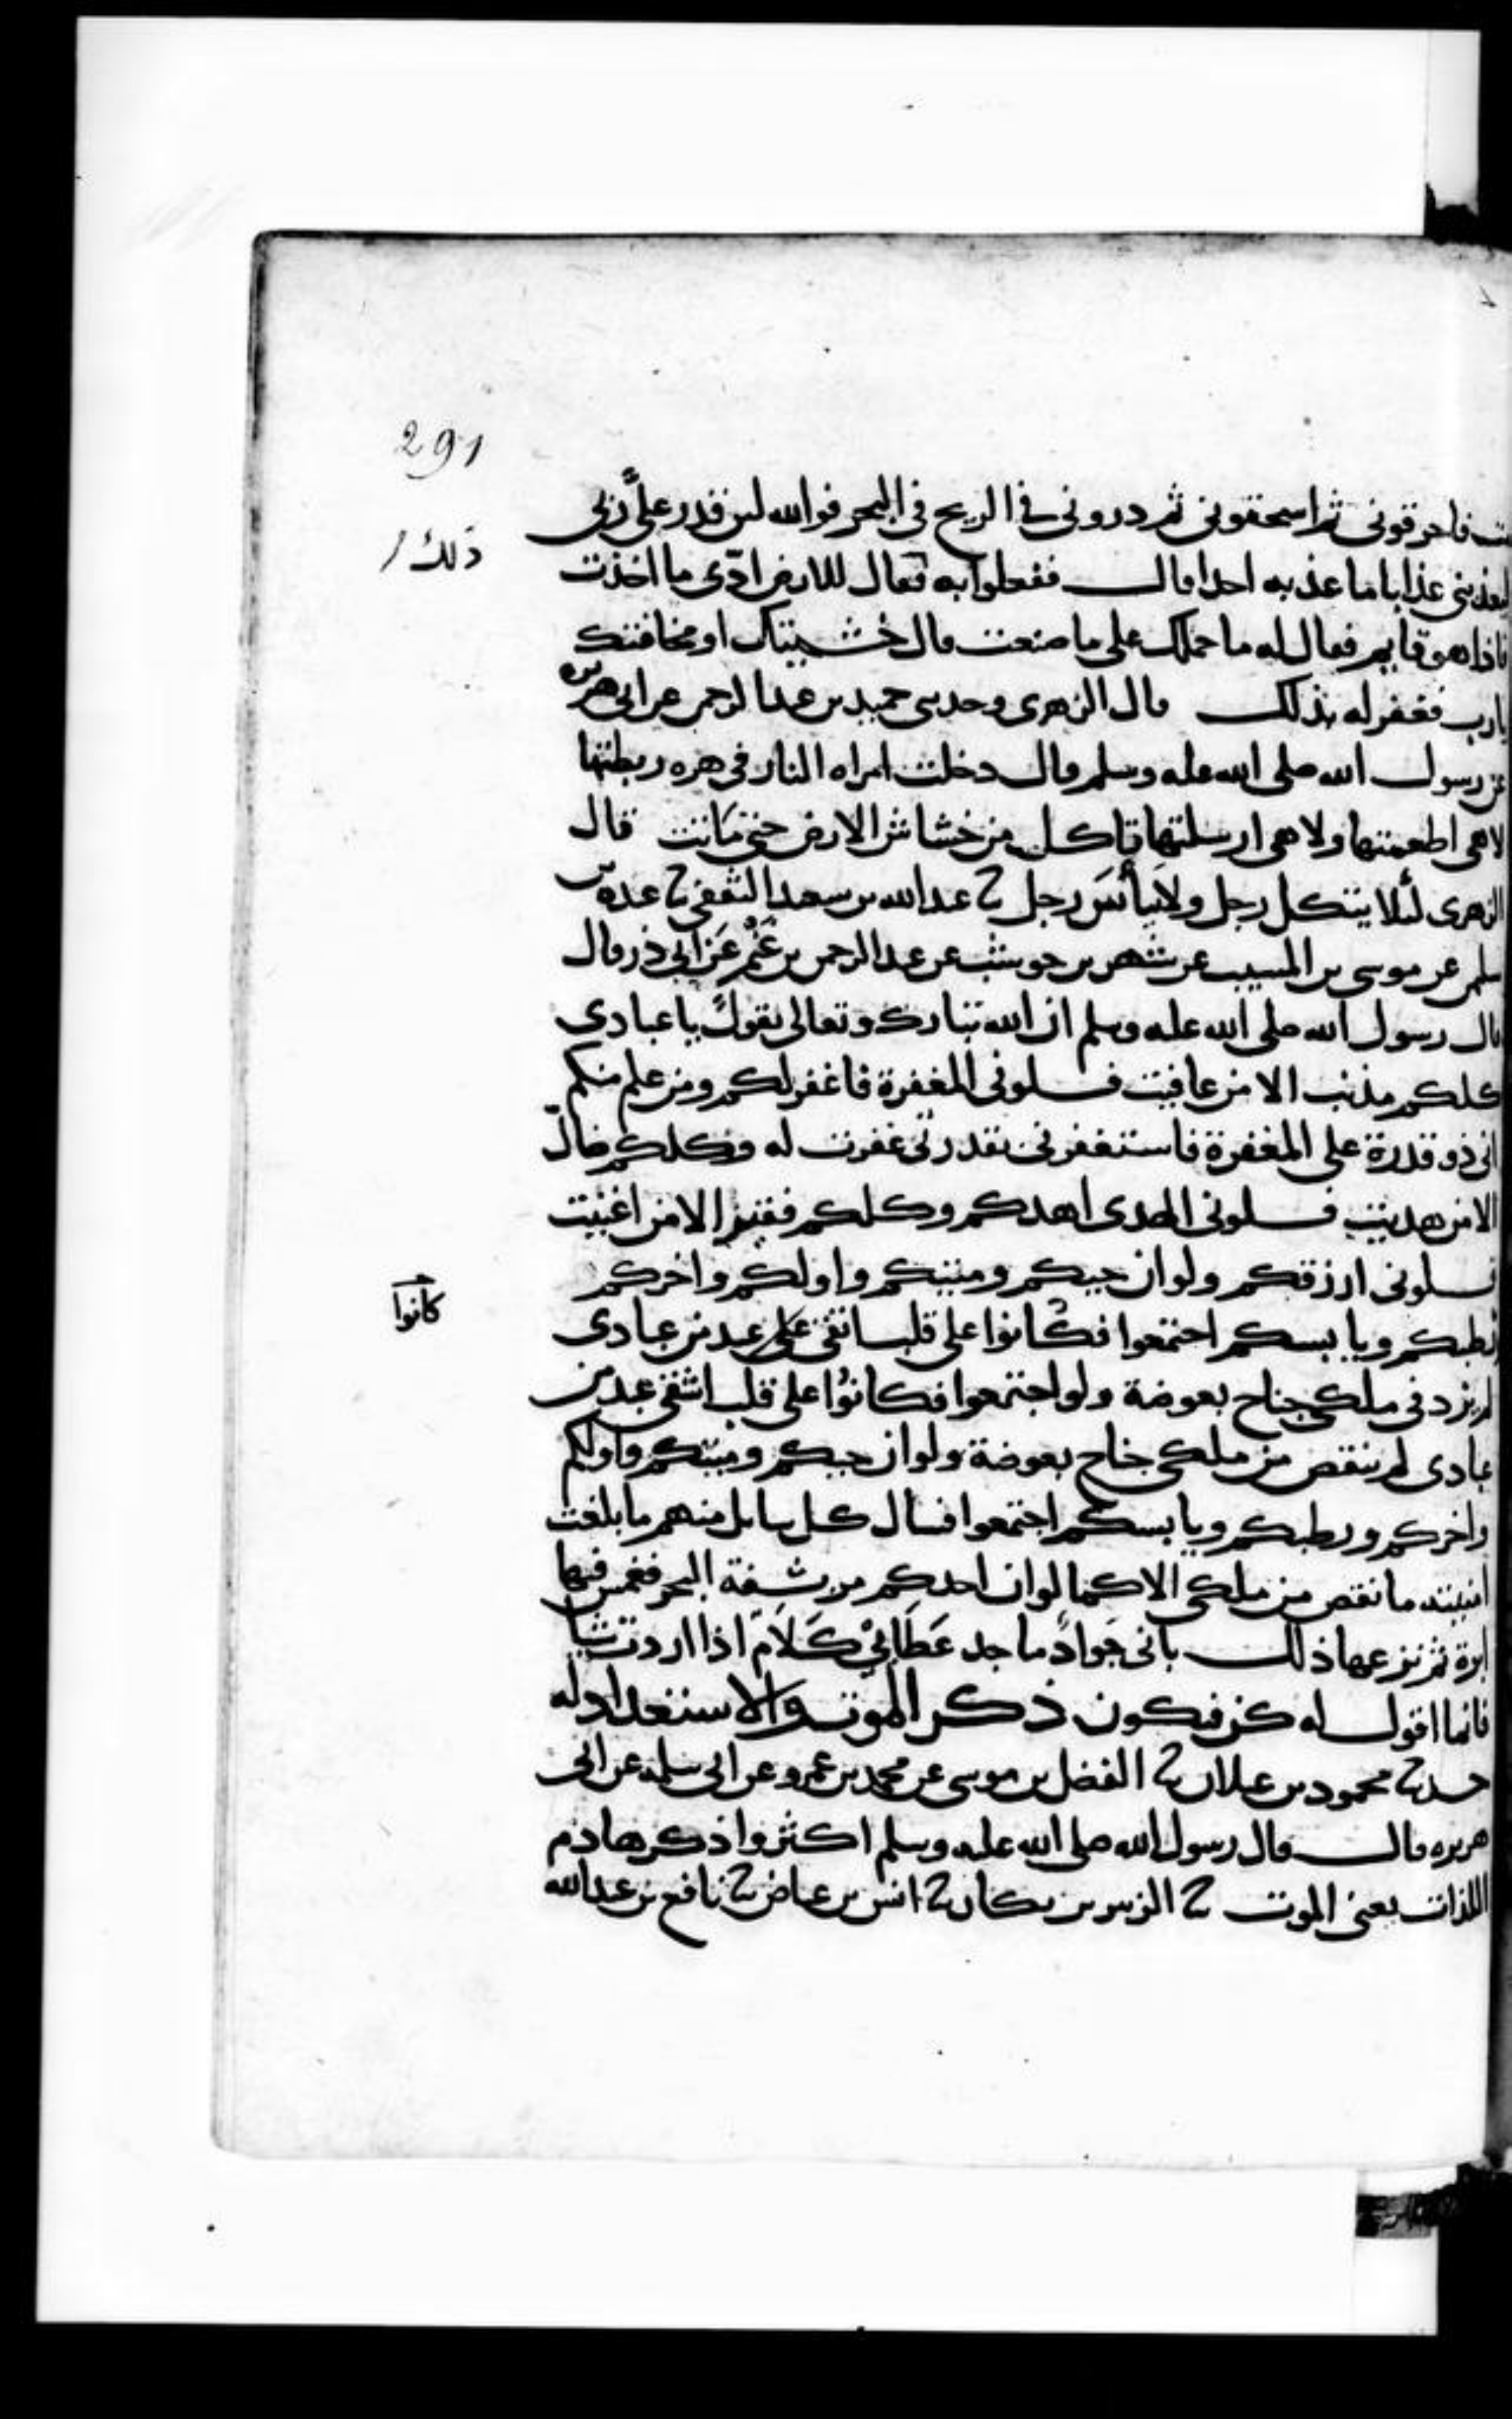 291
فاحرقوني ثم اسحقوني ثم دروني في الريح في البحر فوالله لىن قدر علي ربي
ذلك
ليعذبني عذابا ما عذبه احدا قال ففعلوا به فقال للارض ادي ما اخذت
فاذا هو قايم فقال له ما حملك على ما صنعت قال خشيتك او مخافتك
يارب فغفر له بذلك قال الزهرى وحدىى حميد بن عبد الرحمن عن ابى هريره
عن رسول الله صلى الله عليه وسلم قال دخلت امراه النار في هره ربطتها
لا هي اطعمتها ولا هي ارسلتها تاكل من خشاش الارض حتى ماتت قال
الزهرى لئلا يتكل رجل ولا ييأس رجل ثنا عبد الله بن سعيد الثقفي ثنا عبده بن
سلمن عن موسى بن المسيب عن شهر بن حوشب عن عبد الرحمن بن غنم عن ابي ذر قال
قال رسول الله صلى الله عليه وسلم ان الله تبارك وتعالى يقول يا عبادي
كلكم مذنب الا من عافيت فسلوني المغفرة فاغفر لكم ومن علم منكم
اني ذو قدرة على المغفرة فاستغفرني بقدرتي غفرت له وكلكم ضال
الا من هديت فسلوني الهدى اهدكم وكلكم فقير الا من اغنيت
فسلوني ارزقكم ولو ان حيكم وميتكم واولكم واخركم
كانوا
رطبكم ويابسكم اجتمعوا فكانوا على قلب اتقى عبد من عبادي
لم يزد في ملكي جناح بعوضة ولو اجتمعوا فكانوا على قلب اشقى عبد من
عبادي لم ينقص من ملكي جناح بعوضة ولو ان حيكم وميتكم واولكم
واخركم ورطبكم ويابسكم اجتمعوا فسال كل سايل منهم ما بلغت
امنيته ما نقص من ملكي الا كما لو ان احدكم مر بشفة البحر فغمس فيها
ابرة ثم نزعها ذلك باني جواد ماجد عطائي كلام اذا اردت شيا
فانما اقول له كن فيكون ذكر الموت والاستعداد له
حدثنا محمود بن غيلان ثنا الفضل بن موسى عن محمد بن عمرو عن ابي سلمه عن ابي
هريره قال قال رسول الله صلى الله عليه وسلم اكثروا ذكر هادم
اللذات يعني الموت ثنا الزبير بن بكار ثنا انس بن عياض ثنا نافع بن عبد الله